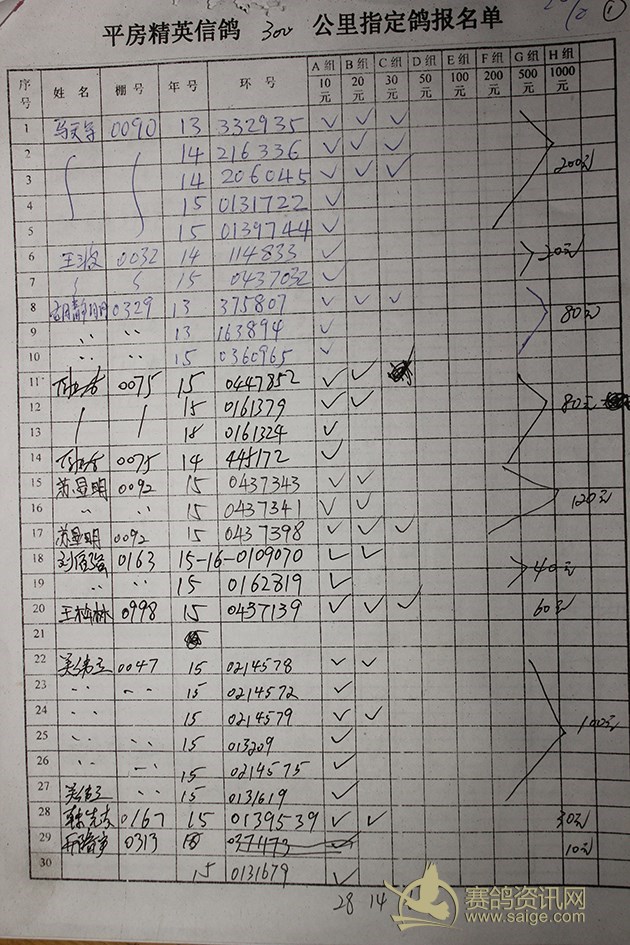 平房精英信鸽 300 公里指定鸽报名单
序号 姓名 棚号 年号 环号 A组10元 B组20元 C组30元 D组50元 E组100元 F组200元 G组500元 H组1000元
1 0090 13 332935 ✓ ✓ ✓
2 14 216336 ✓ ✓ ✓
3 14 206045 ✓ ✓ ✓ 200元
4 15 0131722 ✓
5 15 0139744 ✓
6 王波 0032 14 114833 ✓ 20元
7 15 0437032 ✓
8 胡静明 0329 13 375807 ✓ ✓ ✓ 80元
9 〃 〃 13 163894 ✓
10 〃 〃 15 0360965 ✓
11 0075 15 0447852 ✓ ✓
12 15 0161379 ✓ ✓ 80元
13 15 0161324 ✓
14 0075 14 445172 ✓
15 苏显明 0092 15 0437343 ✓ ✓
16 〃 〃 15 0437341 ✓ ✓ 120元
17 苏显明 0092 15 0437398 ✓ ✓ ✓
18 0163 15-16-0109070 ✓ ✓
19 〃 〃 15 0162819 ✓ 40元
20 王柏林 0998 15 0437139 ✓ ✓ ✓ 60元
21
22 0047 15 0214578 ✓ ✓
23 〃 〃 15 0214572 ✓
24 〃 15 0214579 ✓ ✓ 100元
25 〃 〃 15 013209 ✓
26 〃 〃 15 0214575 ✓
27 〃 15 0131619 ✓
28 0167 15 0139539 ✓ ✓ 30元
29 0313 0371173 10元
30 15 0131679 ✓
28 14
赛鸽资讯网
www.saige.com